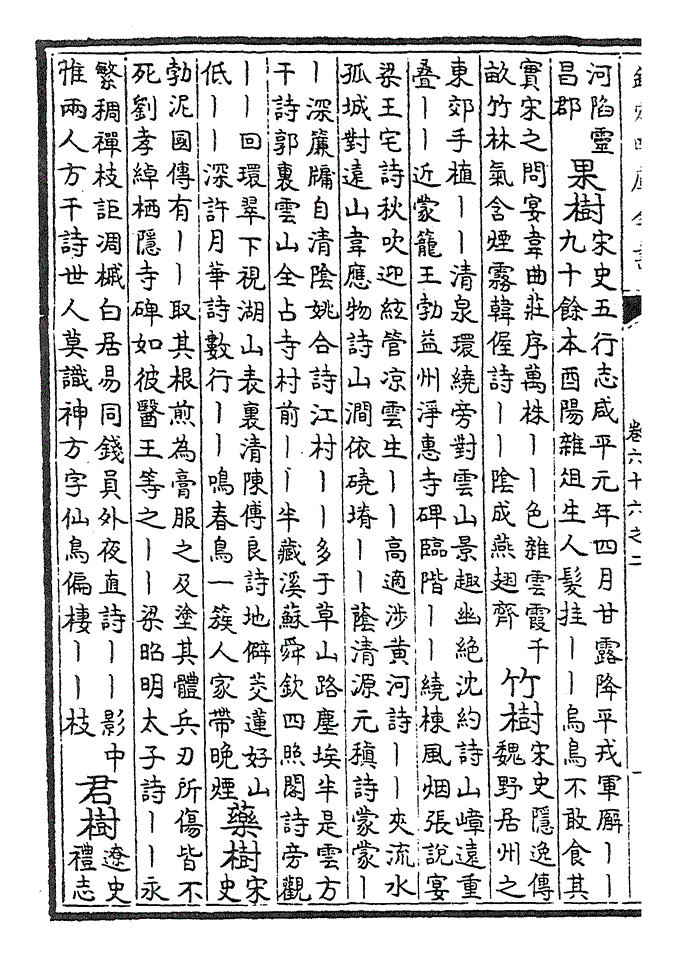 欽定四庫全書
卷六十六之二
河陷靈
昌郡
果樹
宋史五行志咸平元年四月甘露降平戎軍廨丨丨
九十餘本酉陽雜俎生人髮挂丨丨烏鳥不敢食其
實宋之問宴韋曲莊序萬株丨丨色雜雲霞千
畝竹林氣含煙霧韓偓詩丨丨陰成燕翅齊
竹樹
宋史隱逸傳
魏野居州之
東郊手植丨丨清泉環繞旁對雲山景趣幽絕沈約詩山嶂遠重
疊丨丨近蒙籠王勃益州淨惠寺碑臨階丨丨繞棟風烟張說宴
梁王宅詩秋吹迎絃管凉雲生丨丨高適涉黄河詩丨丨夾流水
孤城對遠山韋應物詩山澗依磽塉丨丨蔭清源元稹詩蒙蒙丨
丨深簾牖自清陰姚合詩江村丨丨多于草山路塵埃半是雲方
干詩郭裏雲山全占寺村前丨丨半藏溪蘇舜欽四照閣詩旁觀
丨丨回環翠下視湖山表裏清陳傅良詩地僻芰蓮好山
低丨丨深許月華詩數行丨丨鳴春鳥一簇人家帶晚煙
藥樹
宋
史
勃泥國傳有丨丨取其根煎為膏服之及塗其體兵刃所傷皆不
死劉孝綽栖隱寺碑如彼醫王等之丨丨梁昭明太子詩丨丨永
繁稠禪枝詎凋槭白居易同錢員外夜直詩丨丨影中
惟兩人方干詩世人莫識神方字仙鳥偏棲丨丨枝
君樹
遼史
禮志